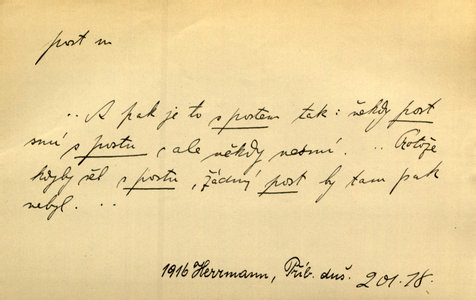 post m
.. A pak je to s postem tak: někdy post
smí s postu, ale někdy nesmí. .. Protože
kdyby šel s postu, žádný post by tam pak
nebyl. ...
1916 Herrmann, Příb. duš. 201.18.